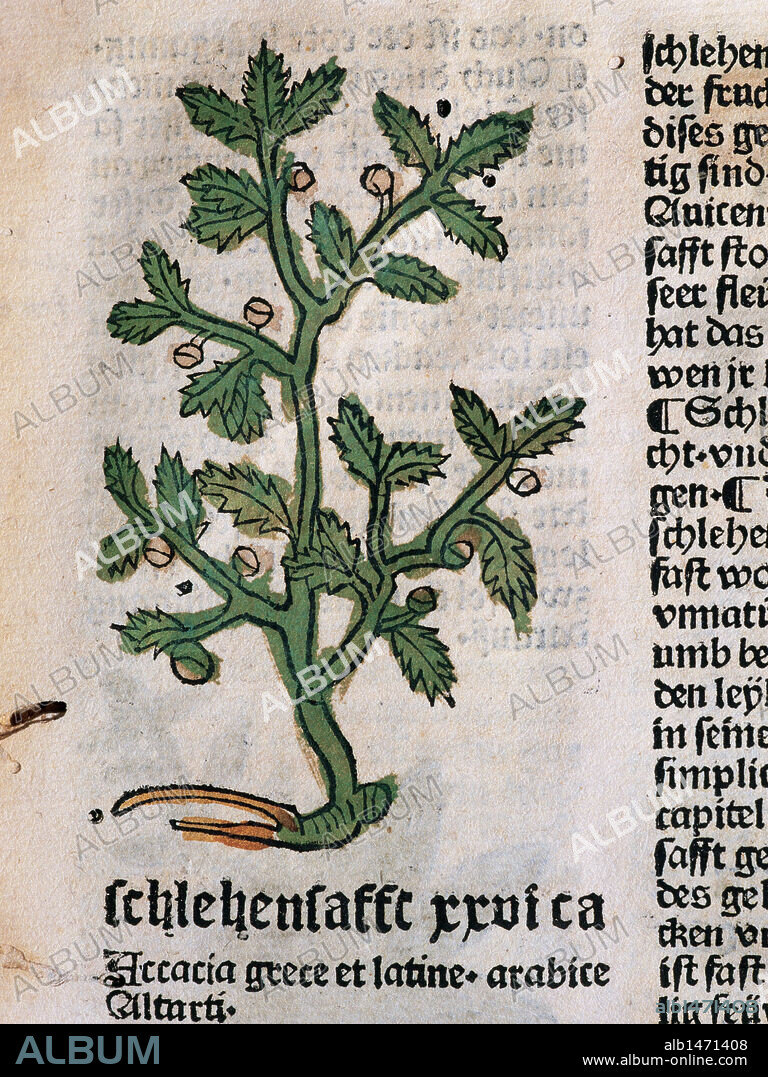 schlehensafft xxvi ca
Accacia grece et latine· arabice
Altarti·
schlehen
der fruch
dises ge
tig sind·
Auicen·
safft sto
seer flei
hat das
wen jr
¶ Schl
cht·vnd
gen·¶
schlehe
fast wo
vnnatü
umb be
den leÿ
in seine
simplic
capitel
safft ge
des gel
cken vn
ist fast
ALBUM
alb1471408
www.album-online.com